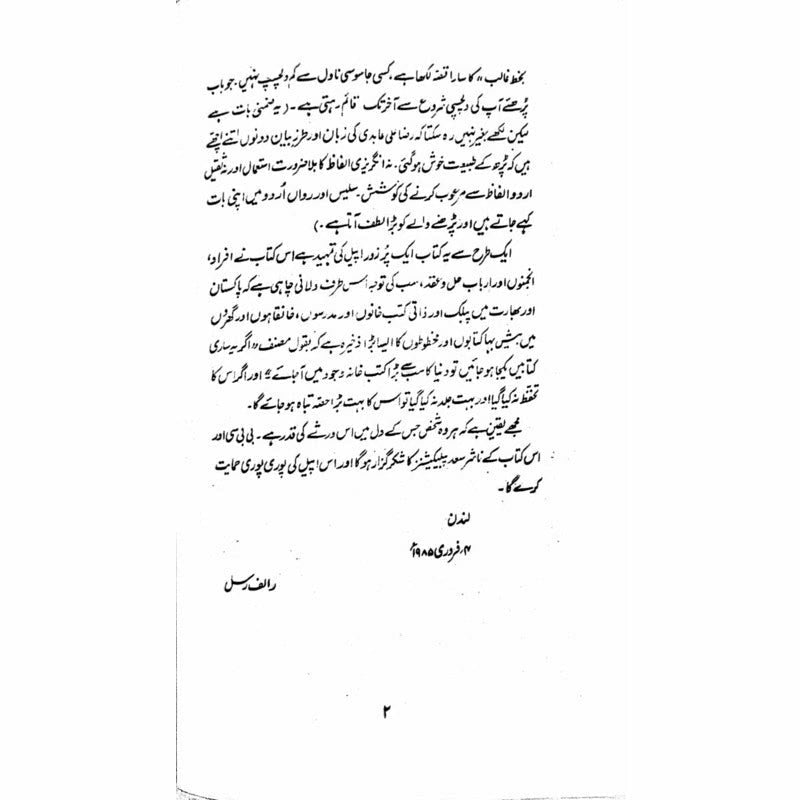 بخط غالب" کا سارا قصہ لکھا ہے، کسی جاسوسی ناول سے کم دلچسپ نہیں۔ جو باب
پڑھئے آپ کی دلچسپی شروع سے آخر تک قائم رہتی ہے۔ (یہ ضمنی بات ہے
لیکن لکھے بغیر نہیں رہ سکتا کہ رضا علی عابدی کی زبان اور طرزِ بیان دونوں اتنے اچھے
ہیں کہ پڑھ کے طبیعت خوش ہوگئی۔ نہ انگریزی الفاظ کا بلا ضرورت استعمال اور نہ ثقیل
اردو الفاظ سے مرعوب کرنے کی کوشش۔ سلیس اور رواں اُردو میں اپنی بات
کہے جاتے ہیں اور پڑھنے والے کو بڑا لطف آتا ہے۔)
ایک طرح سے یہ کتاب ایک پُر زور اپیل کی تمہید ہے اس کتاب نے افراد،
انجمنوں اور ارباب حل و عقد، سب کی توجہ اس طرف دلانی چاہی ہے کہ پاکستان
اور بھارت میں پبلک اور ذاتی کتب خانوں اور مدرسوں، خانقاہوں اور گھروں
میں بیش بہا کتابوں اور مخطوطوں کا ایسا بڑا ذخیرہ ہے کہ بقول مصنف "اگر یہ ساری
کتابیں یکجا ہو جائیں تو دنیا کا سب سے بڑا کتب خانہ وجود میں آجائے" اور اگر اس کا
تحفظ نہ کیا گیا اور بہت جلد نہ کیا گیا تو اس کا بہت بڑا حصّہ تباہ ہو جائے گا۔
مجھے یقین ہے کہ ہر وہ شخص جس کے دل میں اس ورثے کی قدر ہے۔ بی بی سی اور
اس کتاب کے ناشر سعد پبلیکیشنز کا شکر گزار ہوگا اور اس اپیل کی پوری پوری حمایت
کرے گا۔
لندن
۴؍ فروری ۱۹۸۵ء
رالف رسل
۲